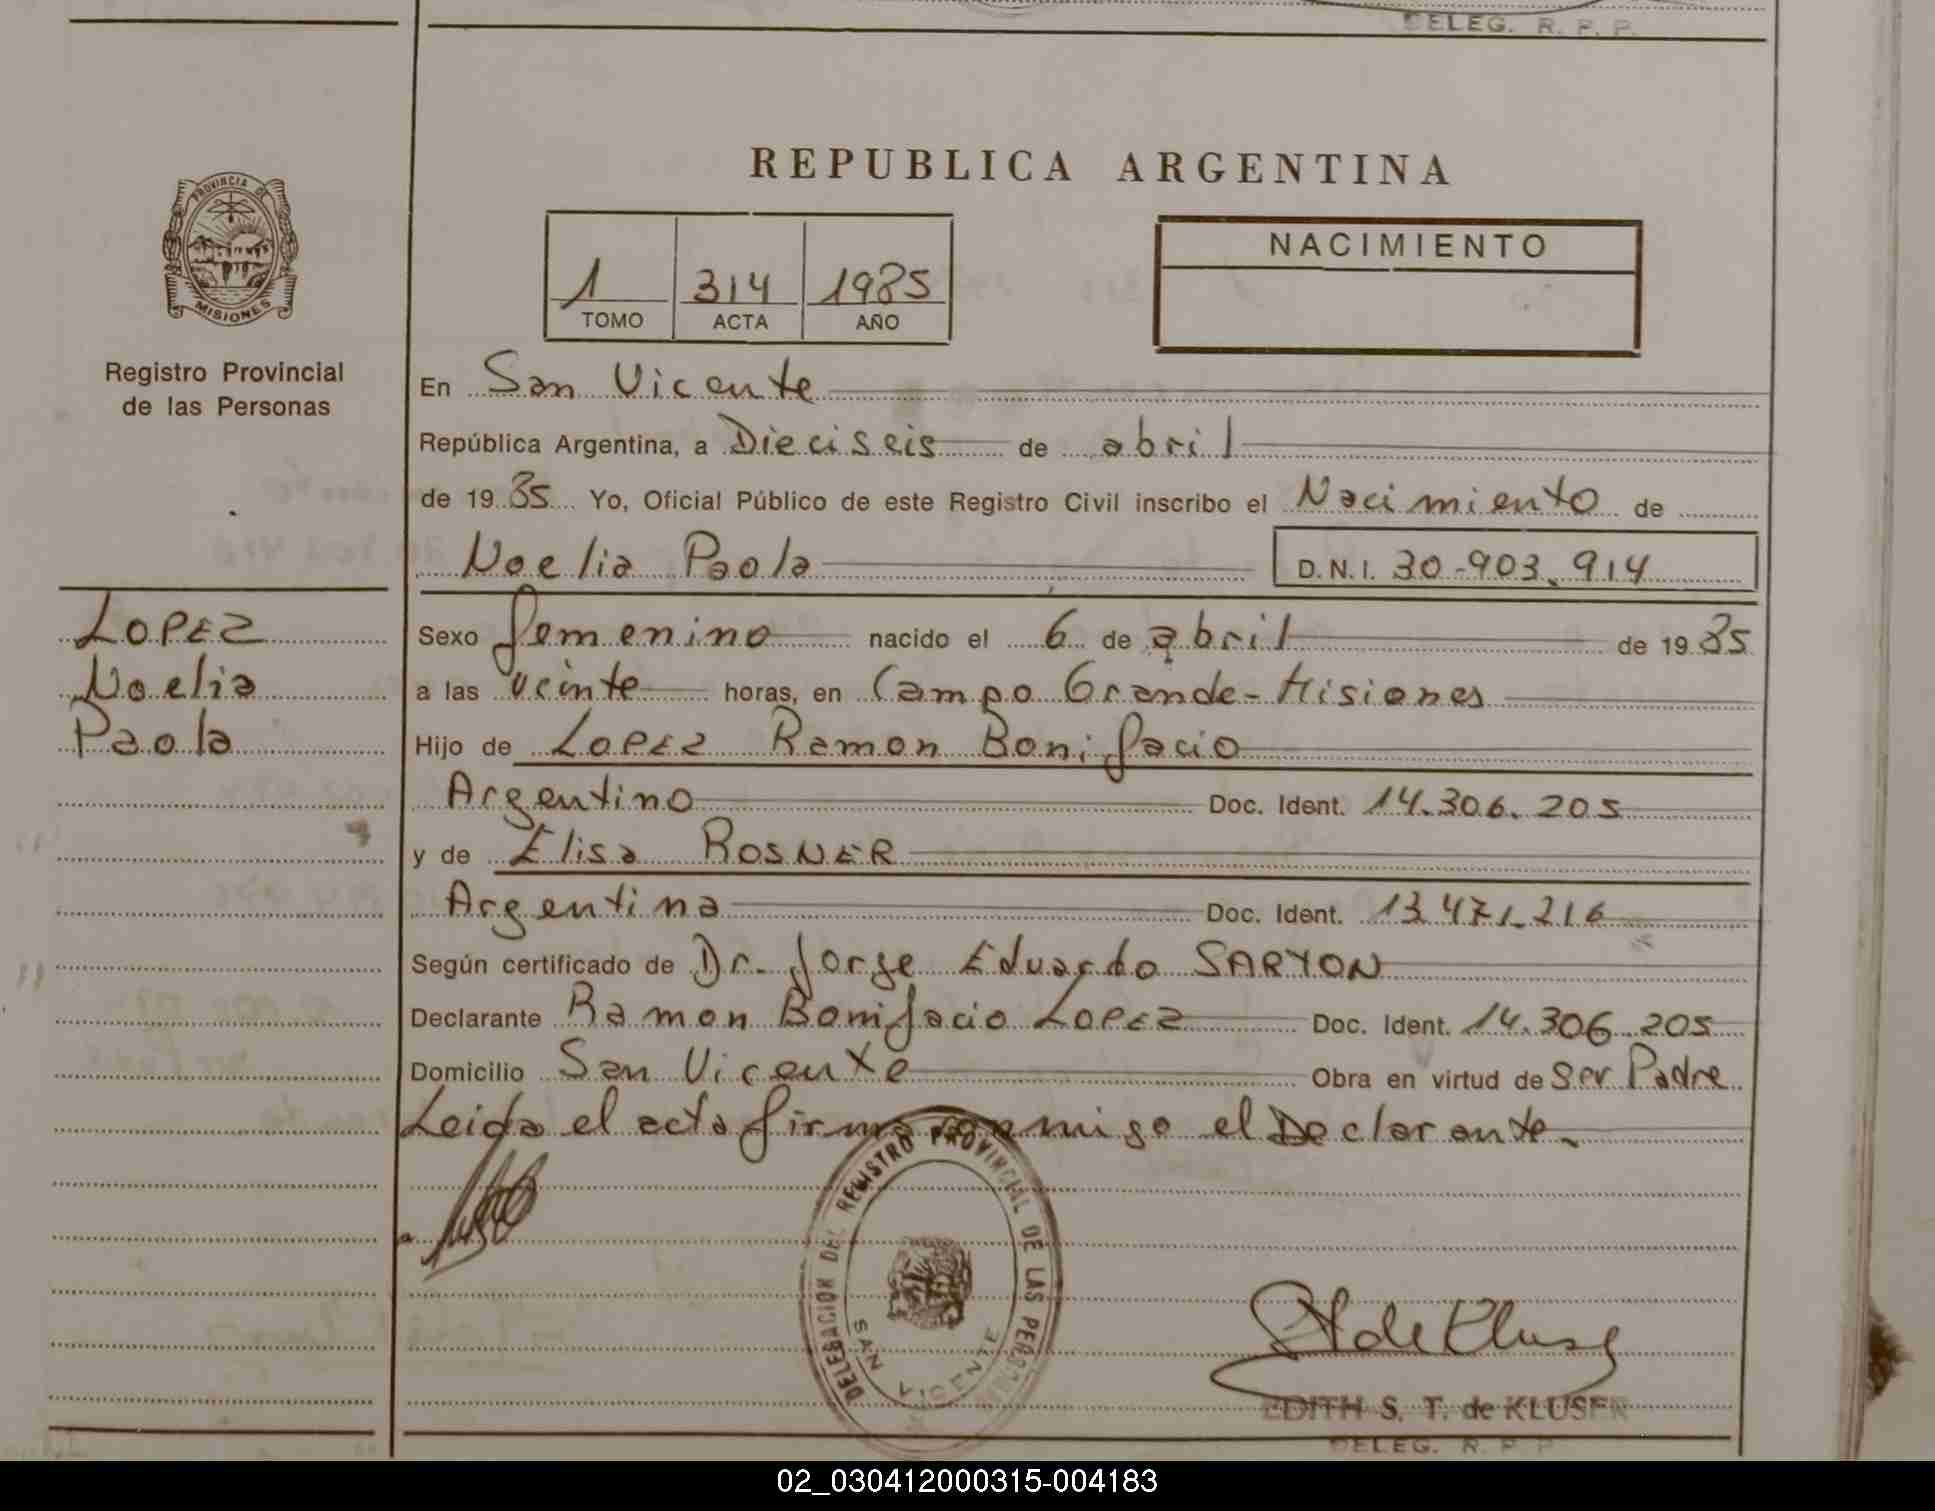 DELEG. R. P. P.
REPUBLICA ARGENTINA
PROVINCIA DE
MISIONES
Registro Provincial
de las Personas
1 314 1985
TOMO ACTA AÑO
NACIMIENTO
En San Vicente
República Argentina, a Dieciseis de abril
de 19 85 Yo, Oficial Público de este Registro Civil inscribo el Nacimiento de
Noelia Paola D.N.I. 30-903.914
LOPEZ
Noelia
Paola
Sexo femenino nacido el 6 de abril de 19 85
a las veinte horas, en Campo Grande-Misiones
Hijo de LOPEZ Ramon Bonifacio
Argentino Doc. Ident. 14.306.205
y de Elisa ROSNER
Argentina Doc. Ident. 13.471.216
Según certificado de Dr. Jorge Eduardo SARYON
Declarante Ramon Bonifacio LOPEZ Doc. Ident. 14.306.205
Domicilio San Vicente Obra en virtud de Ser Padre
Leida el acta firma conmigo el Declarante.
DELEGACION DEL REGISTRO PROVINCIAL DE LAS PERSONAS
SAN VICENTE
EDITH S. T. de KLUSER
DELEG. R. P. P.
02_030412000315-004183